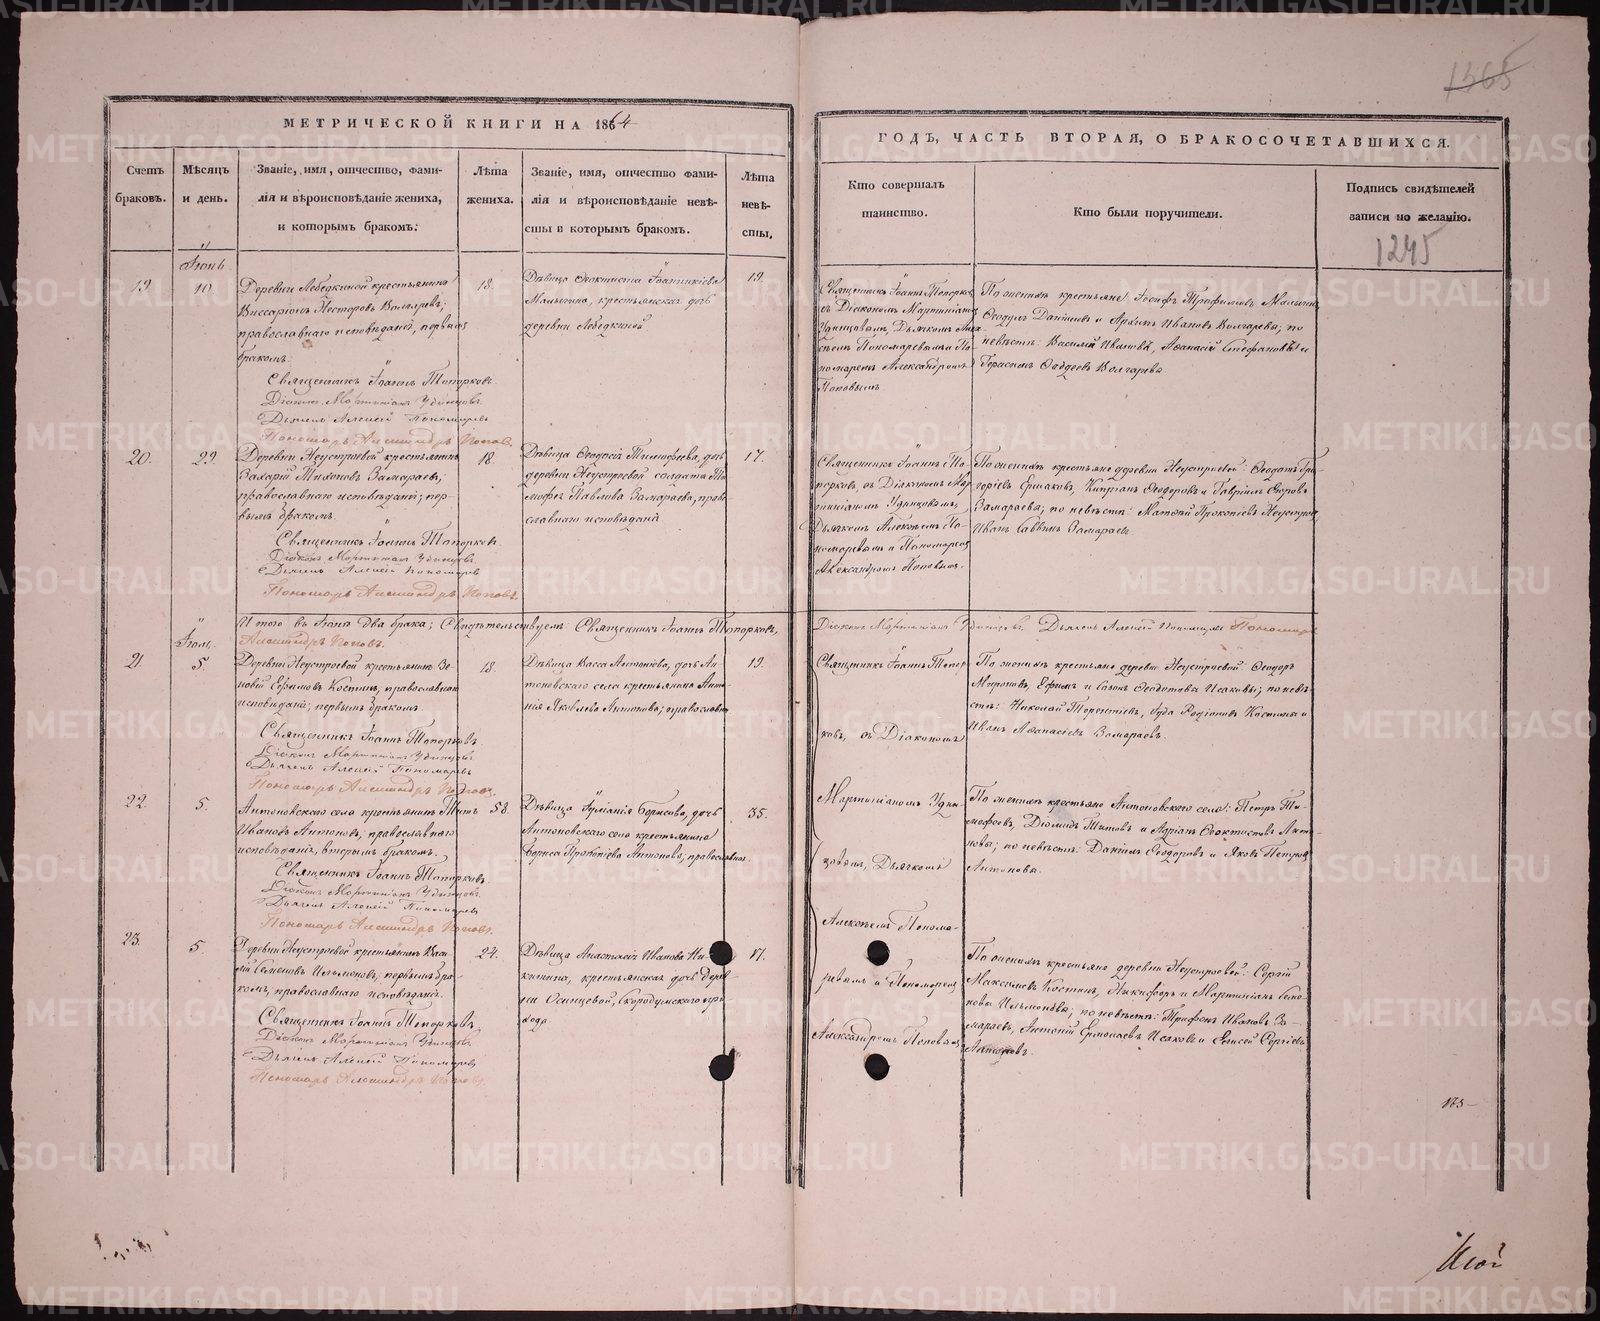 МЕТРИЧЕСКОЙ КНИГИ НА 1864
ГОДЪ, ЧАСТЬ ВТОРАЯ, О БРАКОСОЧЕТАВШИХСЯ.
1565
Счетъ
браковъ.
Мѣсяцъ
и день.
Званіе, имя, отчество, фами-
лія и вѣроисповѣданіе жениха,
и которымъ бракомъ.
Лѣта
жениха.
Званіе, имя, отчество фами-
лія и вѣроисповѣданіе невѣ-
сты и которымъ бракомъ.
Лѣта
невѣ-
сты.
Кто совершалъ
таинство.
Кто были поручители.
Подпись свидѣтелей
записи по желанію.
1245
Іюнь
19.
10.
Деревни Лебедкиной крестьянинъ
Виссаріонъ Несторовъ Волгаревъ;
православнаго исповѣданія, первымъ
бракомъ.
Священникъ Іоаннъ Топорковъ
Діаконъ Мартиніанъ Удинцовъ.
Дьячекъ Алексѣй Пономаревъ
Пономарь Александръ Поповъ.
18.
Дѣвица Ѳеоктиста Іоанникіева
Малыгина, крестьянская дочь
деревни Лебедкиной.
19.
Священникъ Іоаннъ Топорковъ
съ Діакономъ Мартиніаномъ
Удинцовымъ, Дьячкомъ Алек-
сѣемъ Пономаревымъ и По-
номаремъ Александромъ
Поповымъ.
По женихѣ крестьяне: Іосифъ Трофимовъ Малыгинъ,
Ѳеодулъ Даніиловъ и Архипъ Ивановъ Волгаревы; по
невѣстѣ: Василій Ивановъ, Аѳанасій Стефановъ и
Герасимъ Ѳаддеевъ Волгаревы.
20.
29.
Деревни Неустроевой крестьянинъ
Захарій Тихоновъ Замараевъ;
православнаго исповѣданія; пер-
вымъ бракомъ.
Священникъ Іоаннъ Топорковъ.
Діаконъ Мартиніанъ Удинцовъ
Дьячекъ Алексѣй Пономаревъ
Пономарь Александръ Поповъ.
18.
Дѣвица Ѳеодосія Тимоѳеева, дочь
деревни Неустроевой солдата Ти-
моѳея Павлова Замараева, прав-
славнаго исповѣданія
17.
Священникъ Іоаннъ То-
порковъ, съ Діакономъ Мар-
тиніаномъ Удинцовымъ,
Дьячкомъ Алексѣемъ По-
номаревымъ и Пономаремъ
Александромъ Поповымъ.
По женихѣ крестьяне деревни Неустроевой: Ѳеодотъ Гри-
горіевъ Ершаковъ, Кипріанъ Ѳеодоровъ и Гавріилъ Егоровъ
Замараевы; по невѣстѣ: Матѳей Прокопіевъ Неустроевъ,
Иванъ Саввинъ Замараевъ
Итого въ Іюнѣ два брака; Свидѣтельствуемъ: Священникъ Іоаннъ Топорковъ,
Діаконъ Мартиніанъ Удинцовъ. Дьячекъ Алексѣй Пономаревъ Пономарь
Александръ Поповъ.
Іюль.
21.
5.
Деревни Неустроевой крестьянинъ Зе-
новій Ефимовъ Костинъ, православнаго
исповѣданія; первымъ бракомъ.
Священникъ Іоаннъ Топорковъ
Діаконъ Мартиніанъ Удинцовъ
Дьячекъ Алексѣй Пономаревъ
Пономарь Александръ Поповъ.
18.
Дѣвица Васса Антоніева, дочь Ан-
тоновскаго села крестьянина Анто-
нія Яковлева Антонова; православна
19.
Священникъ Іоаннъ Топор-
ковъ, съ Діакономъ
Мартиніаномъ Удин-
цовымъ, Дьячкомъ
Алексѣемъ Понома-
ревымъ и Пономаремъ
Александромъ Поповымъ
По женихѣ крестьяне деревни Неустроевой: Ѳеодоръ
Мироновъ, Ефимъ и Созонъ Ѳеодотовы Исаковы; по невѣ-
стѣ: Николай Терентіевъ, Іуда Родіоновъ Костины и
Иванъ Аѳанасіевъ Замараевъ.
22.
5.
Антоновскаго села крестьянинъ Титъ
Ивановъ Антоновъ, православнаго
исповѣданія, вторымъ бракомъ.
Священникъ Іоаннъ Топорковъ.
Діаконъ Мартиніанъ Удинцовъ.
Дьячекъ Алексѣй Пономаревъ
Пономарь Александръ Поповъ.
58.
Дѣвица Іуліанія Борисова, дочь
Антоновскаго села крестьянина
Бориса Прокопіева Антонова; православная.
35.
По женихѣ крестьяне Антоновскаго села: Петръ Ти-
моѳеевъ, Діомидъ Титовъ и Адріанъ Ѳеоктистовъ Анто-
новы; по невѣстѣ: Даніилъ Ѳеодоровъ и Яковъ Петровъ
Антоновы.
23.
5.
Деревни Неустроевой крестьянинъ Васи-
лій Семеновъ Ильмоновъ, первымъ бра-
комъ, православнаго исповѣданія.
Священникъ Іоаннъ Топорковъ.
Діаконъ Мартиніанъ Удинцовъ
Дьячекъ Алексѣй Пономаревъ
Пономарь Александръ Поповъ.
24.
Дѣвица Анастасія Иванова Ни-
китина, крестьянская дочь дерев-
ни Осинцевой, Скородумскаго при-
хода.
17.
По женихѣ крестьяне деревни Неустроевой: Сергій
Максимовъ Костинъ, Никифоръ и Мартиніанъ Семе-
новы Ильмоновы; по невѣстѣ: Трифонъ Ивановъ За-
мараевъ, Антоній Ермолаевъ Исаковъ и Елисей Сергіевъ
Антоновъ.